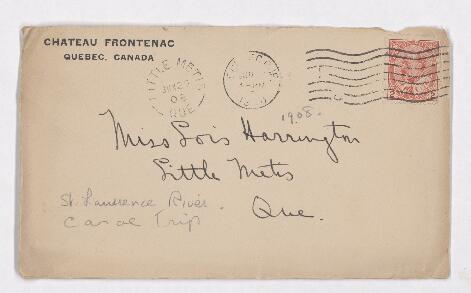 CHATEAU FRONTENAC
QUEBEC, CANADA
LITTLE METIS
08
QUE
1908.
Miss Lois Harrington
Little Metis
Que.
St. Lawrence River.
Canoe Trip